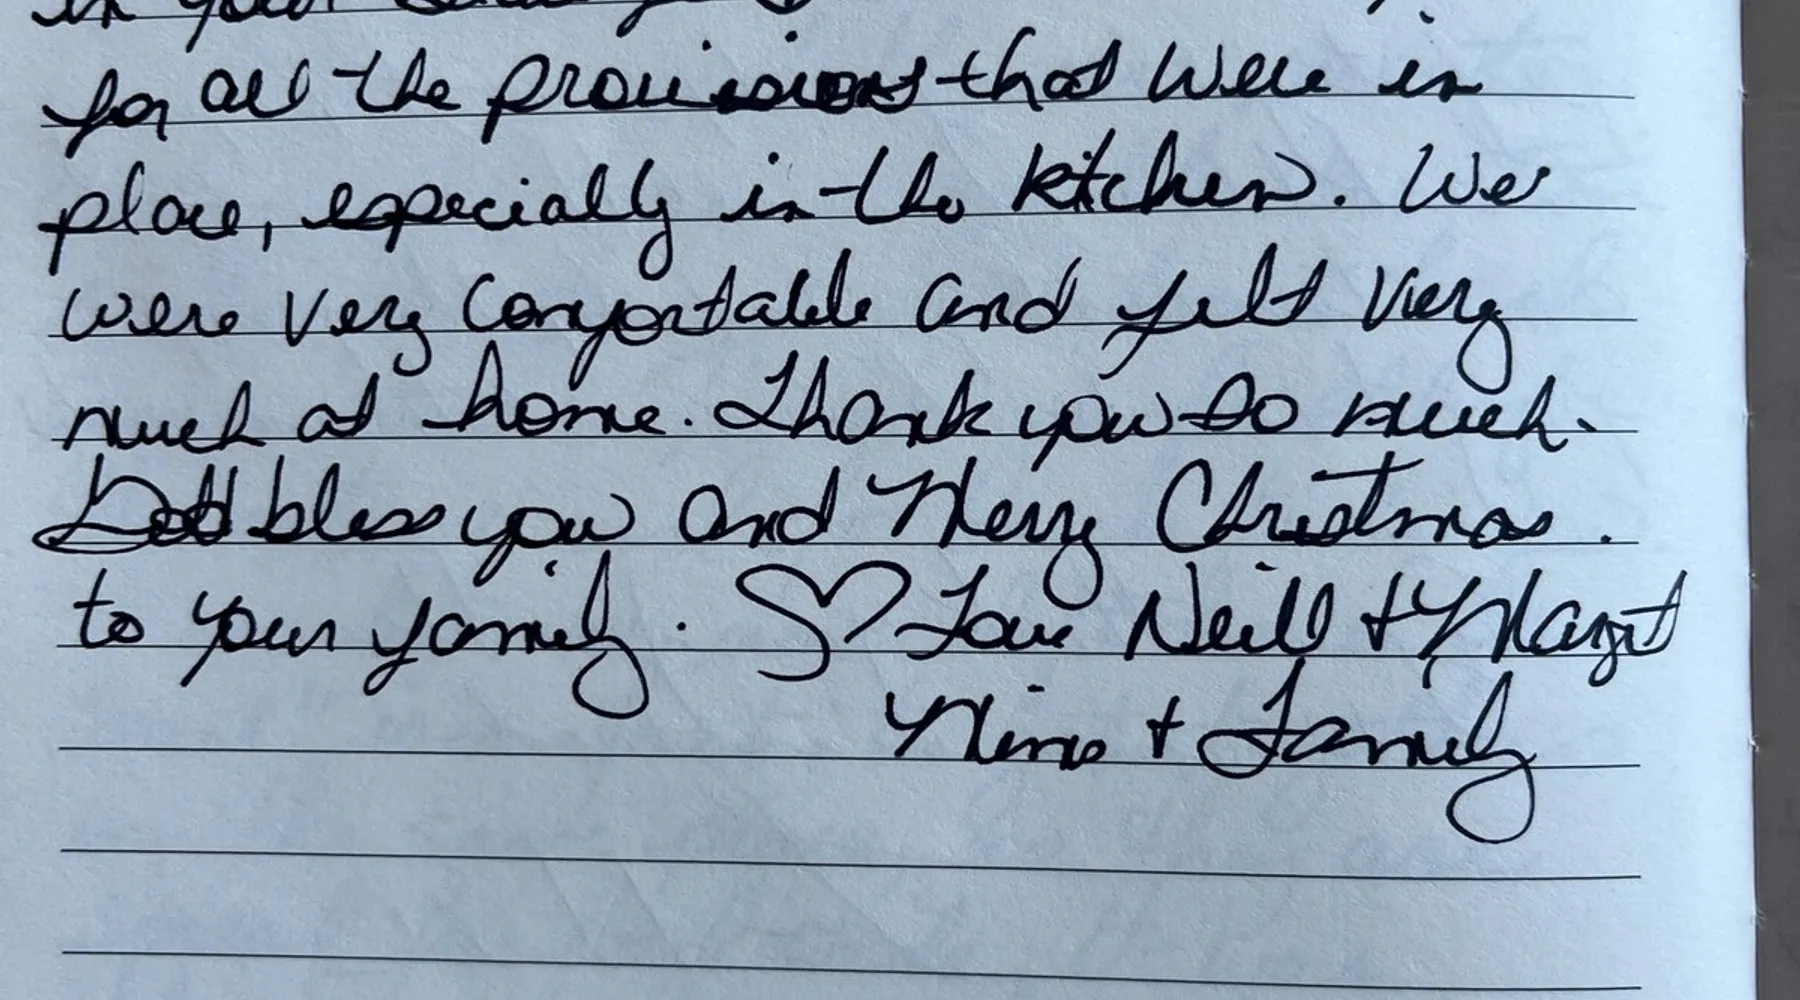 in your
for all the provisions that were in
place, especially in the kitchen. We
were very comfortable and felt very
much at home. Thank you so much.
God bless you and Merry Christmas.
to your family. Love Neill + Margit
Nino + Family